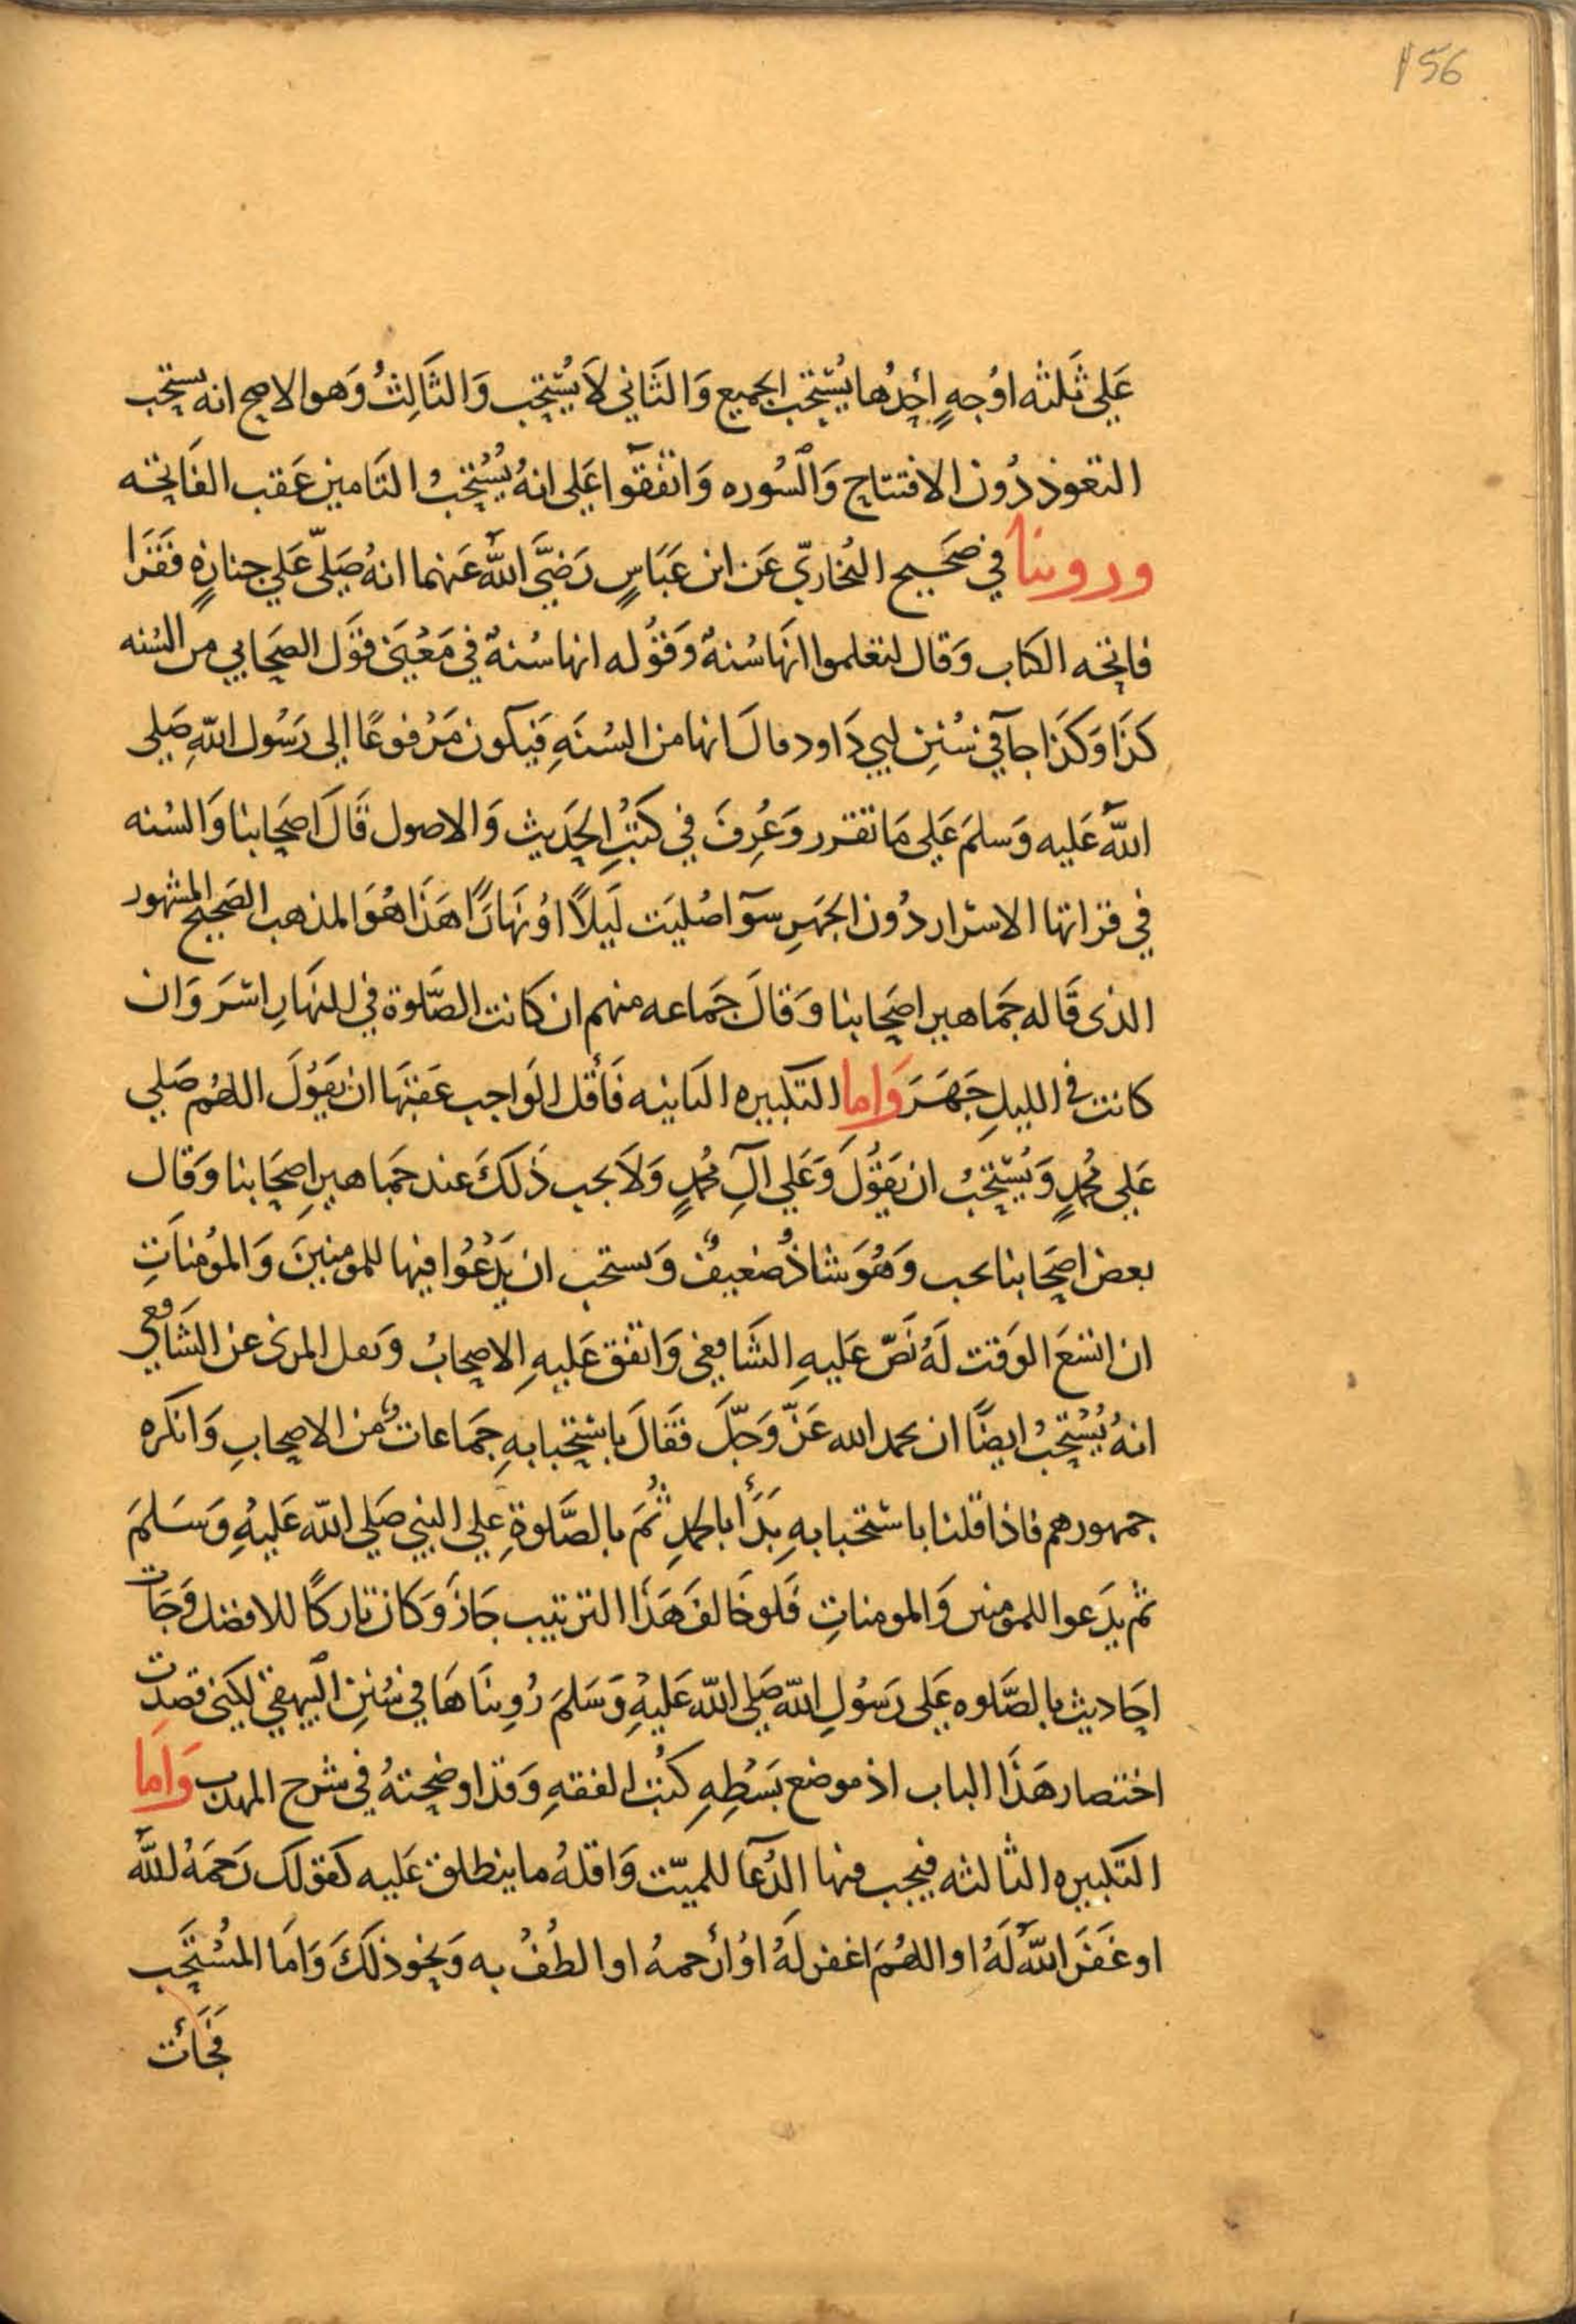 156
عَلي ثَلثه اوُجهٍ اَحِدُها يُسْتحَب الجميع وَالثَاني لاَ يُسْتحَب وَالثَالِثُ وَهو الاصح انه يستحب
التعوذ دُون الافتتاح وَالسُوره وَاتفقوا عَلى انهُ يُسْتحَبُ التَامين عَقب الفَاتحه
وروينا في صَحَيح البُخاريّ عَن ابن عَبَاسٍ رَضيَّ اللهَ عَنهما انهُ صَلّى عَلي جنازةٍ فَقَرَا
فاتحه الكتاب وَقال لتعلموا انَها سُنةٌ وَقوُله انها سُنةٌ في مَعْنَى قوَل الصَحَابي من السُنه
كَذَا وَكَذَا جآ في سُنَنِ ابي دَاود قالَ انها من السُنَةِ فَيكون مَرْفوعًا الى رَسُول اللهِ صَلى
اللهَ عَليه وَسلمَ عَلى مَا تقرر وَعُرِفَ في كتبُ الحَديث وَالاصول قَالَ اصَحَابنا وَالسُنه
في قراتها الاسْرار دُون الجهَرِ سوآ اصُليَت لَيَلاً اوُ نَهَارًا هَذا هُوَ المذهب الصَحيح المشهور
الذى قَاله جَماهير اصَحابنا وَقالَ جَماعه منهم ان كانت الصَّلوة في النهَارِ اسْرَ وَان
كانت في الليلِ جَهَرَ وَاما التكبيره الثانيه فَأقل الوَاجب عَقبَهَا ان يَقوُلَ اللهُم صَلي
عَلى مُحمدٍ وَيُسْتحَبُ ان يَقوُلَ وَعَلي آلِ مُحمدٍ وَلاَ يجب ذَلكَ عند جَماهيرِ اصِحَابنا وَقال
بعض اصحَابنا يجب وَهُوَ شاذُ ضعيفٌ وَيستحب ان يَدْعُوا فيها للمومنينَ وَالموُمناتِ
ان اتسَعَ الوَقت لَهُ نَصّ عَليهِ الشَافعي وَاتفق عَليهِ الاصحابُ وَنقل المزنى عن الشَافعي
انهُ يُسْتحَبُ ايضًا ان يحمد الله عَزّ وَجلّ فقَالَ باسْتحبابهِ جَماعاتٌ من الاصحابِ وَانكره
جمهورهم فاذا قلنا باسْتحبابهِ بَدَأَ بالحمدِ ثُمَ بالصَّلوةِ علي النبي صَلي الله عَليهِ وَسَلمَ
ثم يدَعوا للمومنين وَالمومناتِ فَلو خَالفَ هَذَا الترتيب جَازَ وَكان تاركًا للافضل وَجَات
احَاديث بالصَّلوه عَلى رَسُولِ الله صَلى الله عَليهِ وَسَلمَ رُوينَاهَا في سُنَنِ البيهقي لكني قصدت
اختصار هَذَا الباب اذ موضع بَسْطِهِ كتبُ الفقهِ وَقد اوضحتهُ في شرح المهذب وَامَا
التكبيره الثالثه فيجب فيها الدُعآ للميّت وَاقلهُ ما ينطلق عَليه كقولك رَحمَهُ اللهَ
او غَفَرَ اللهَ لَهُ او اللهُمَ اغفر لَهُ اوُ ارْحمهُ او الطُفُ به وَنحو ذلكَ وَامَا المسُتحَب
فجَأت